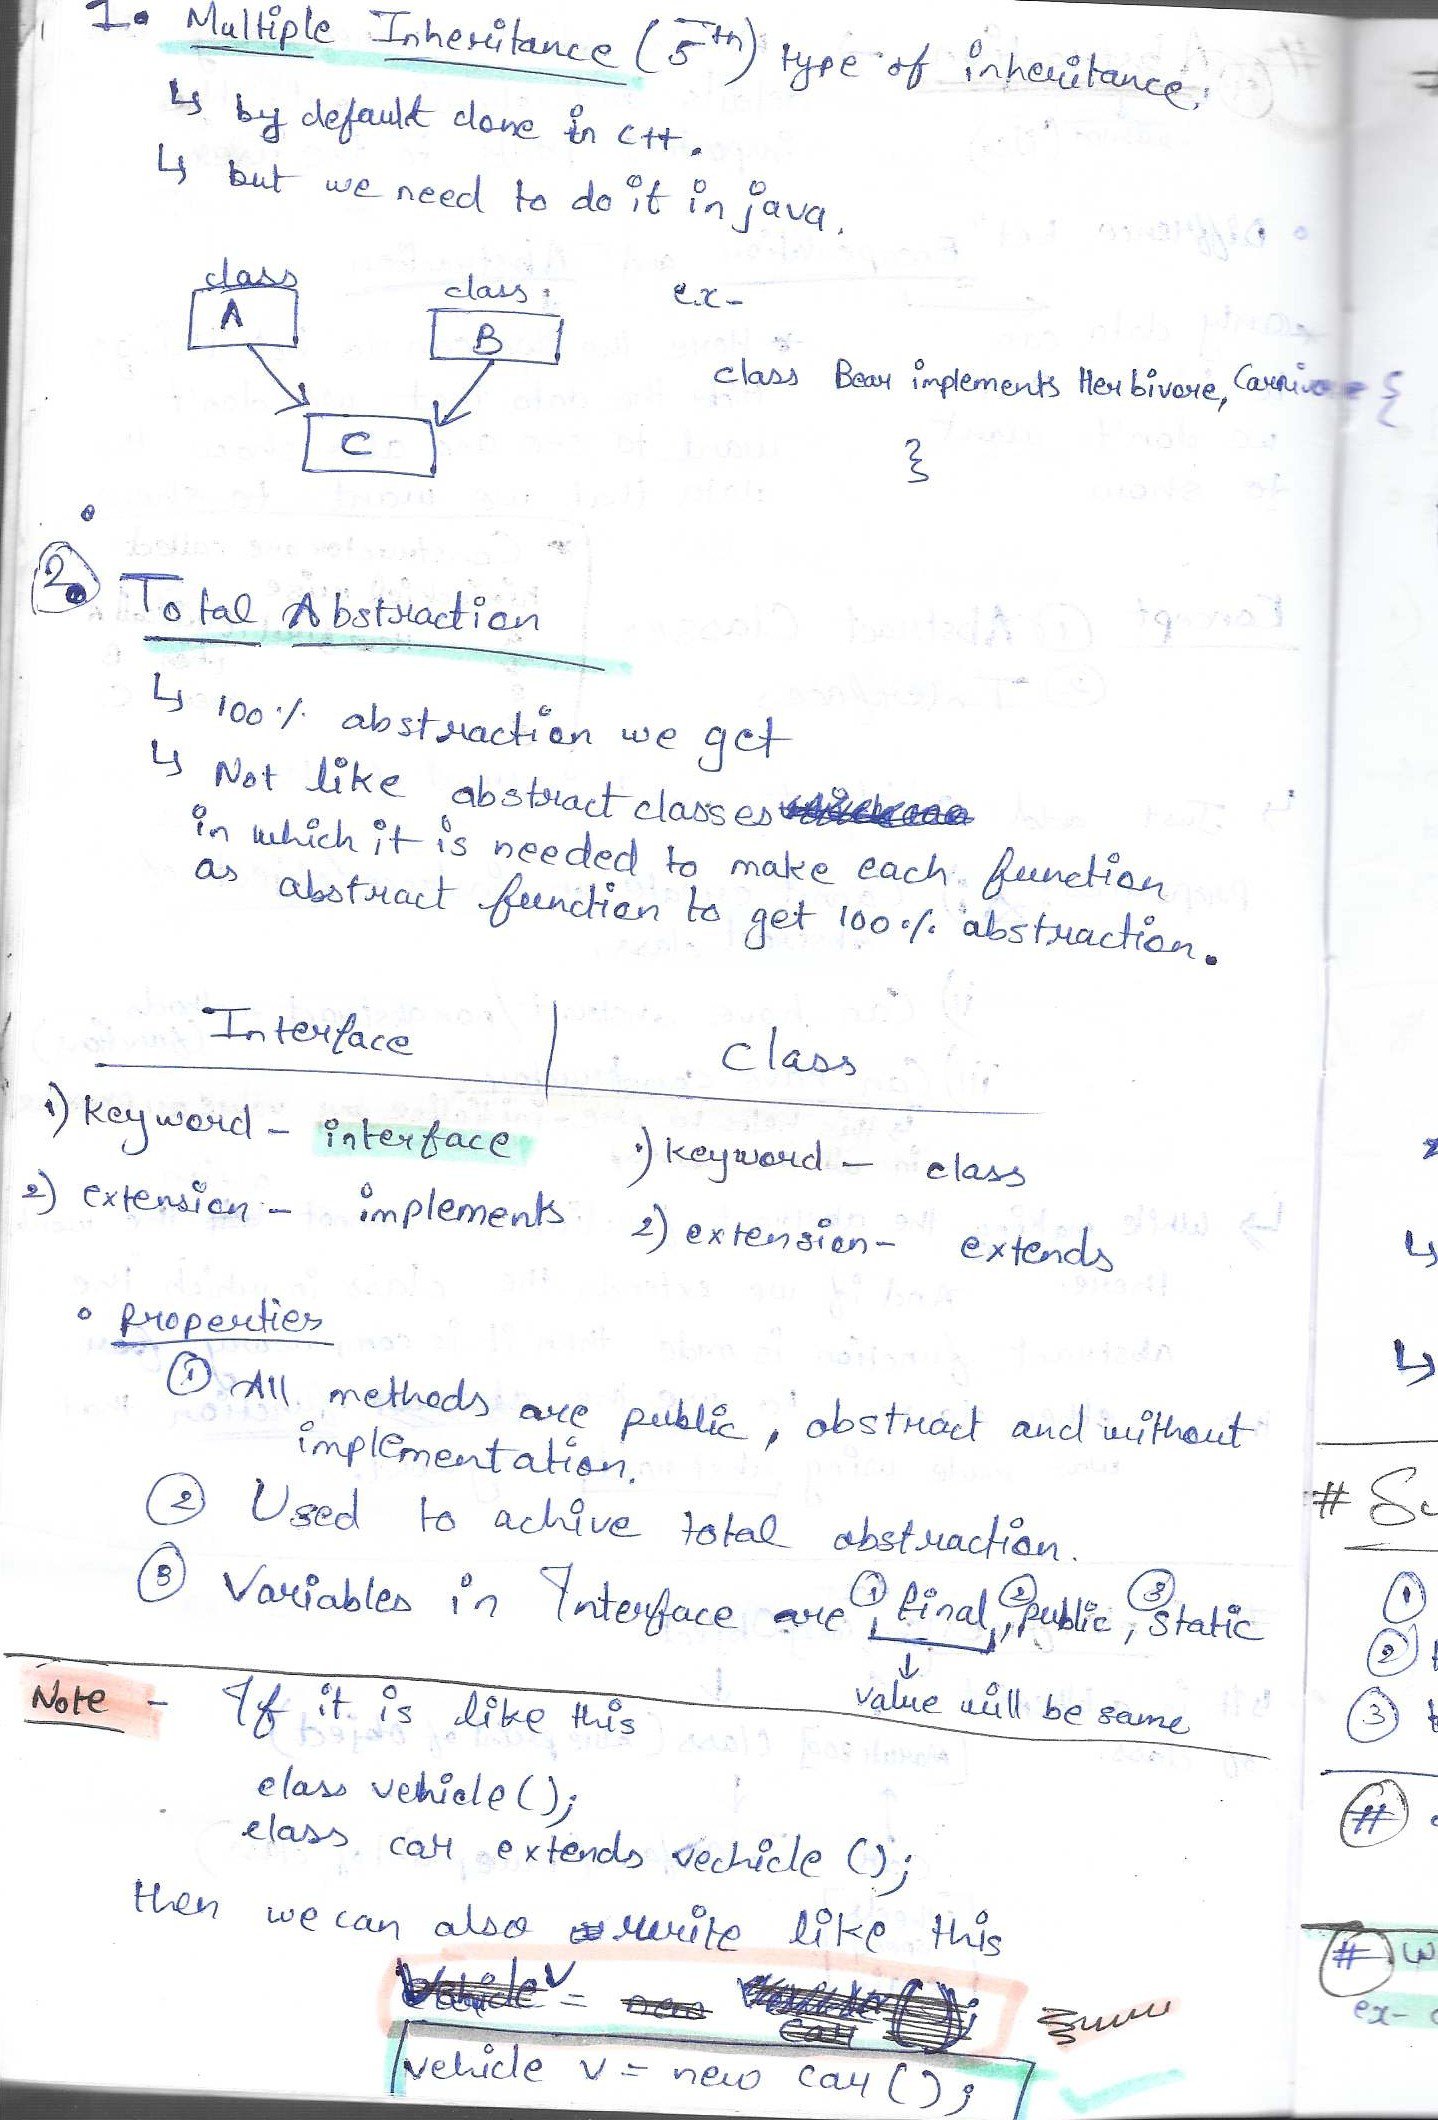 1. Multiple Inheritance (5th) type of inheritance.
↳ by default done in C++.
↳ but we need to do it in java.
class
A
class
B
C
ex-
class Bear implements Herbivore, Carnivore {
}
2. Total Abstraction
↳ 100% abstraction we get
↳ Not like abstract classes
in which it is needed to make each function
as abstract function to get 100% abstraction.
Interface | Class
1) Keyword - interface
1) Keyword - class
2) extension - implements
2) extension - extends
• Properties
① All methods are public, abstract and without
implementation.
② Used to achive total abstraction.
③ Variables in Interface are ① final, ② public, ③ static
value will be same
Note - If it is like this
class vehicle();
class car extends vechicle ();
then we can also write like this
vehicle v = new car();
# Su
①
②
③
#
# W
ex- c